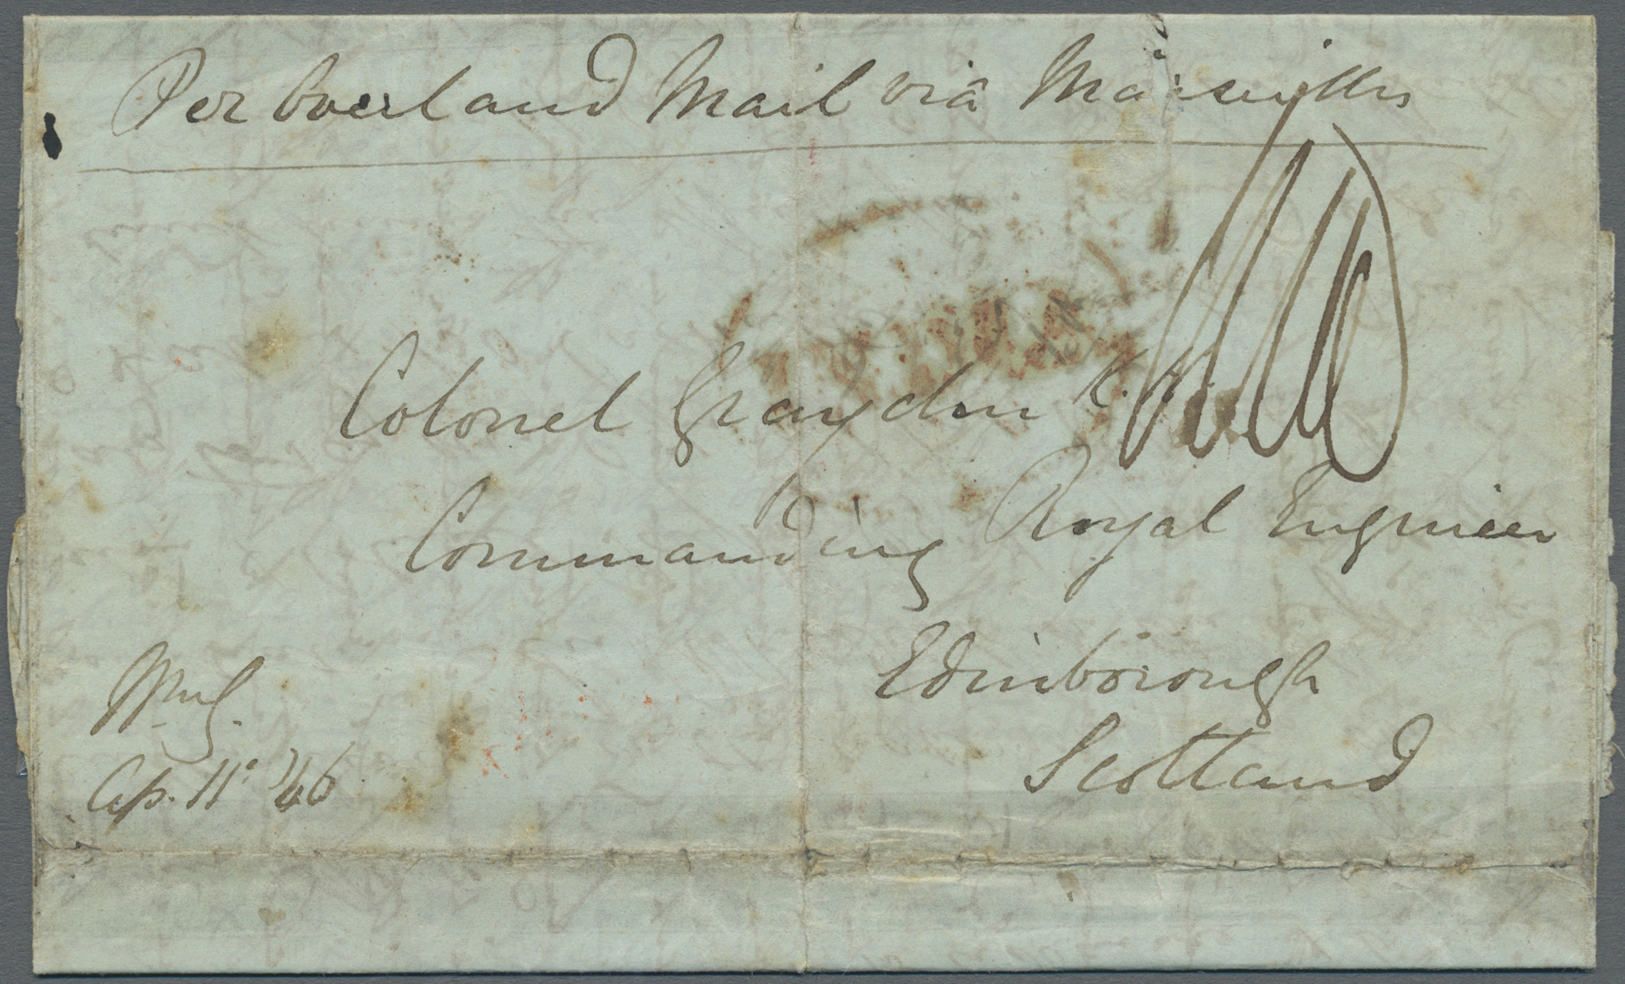 Per Overland Mail via Marseilles
Colonel Graydon K.H.
Commanding Royal Engineer
Edinborough
Scotland
Ap. 11° '46